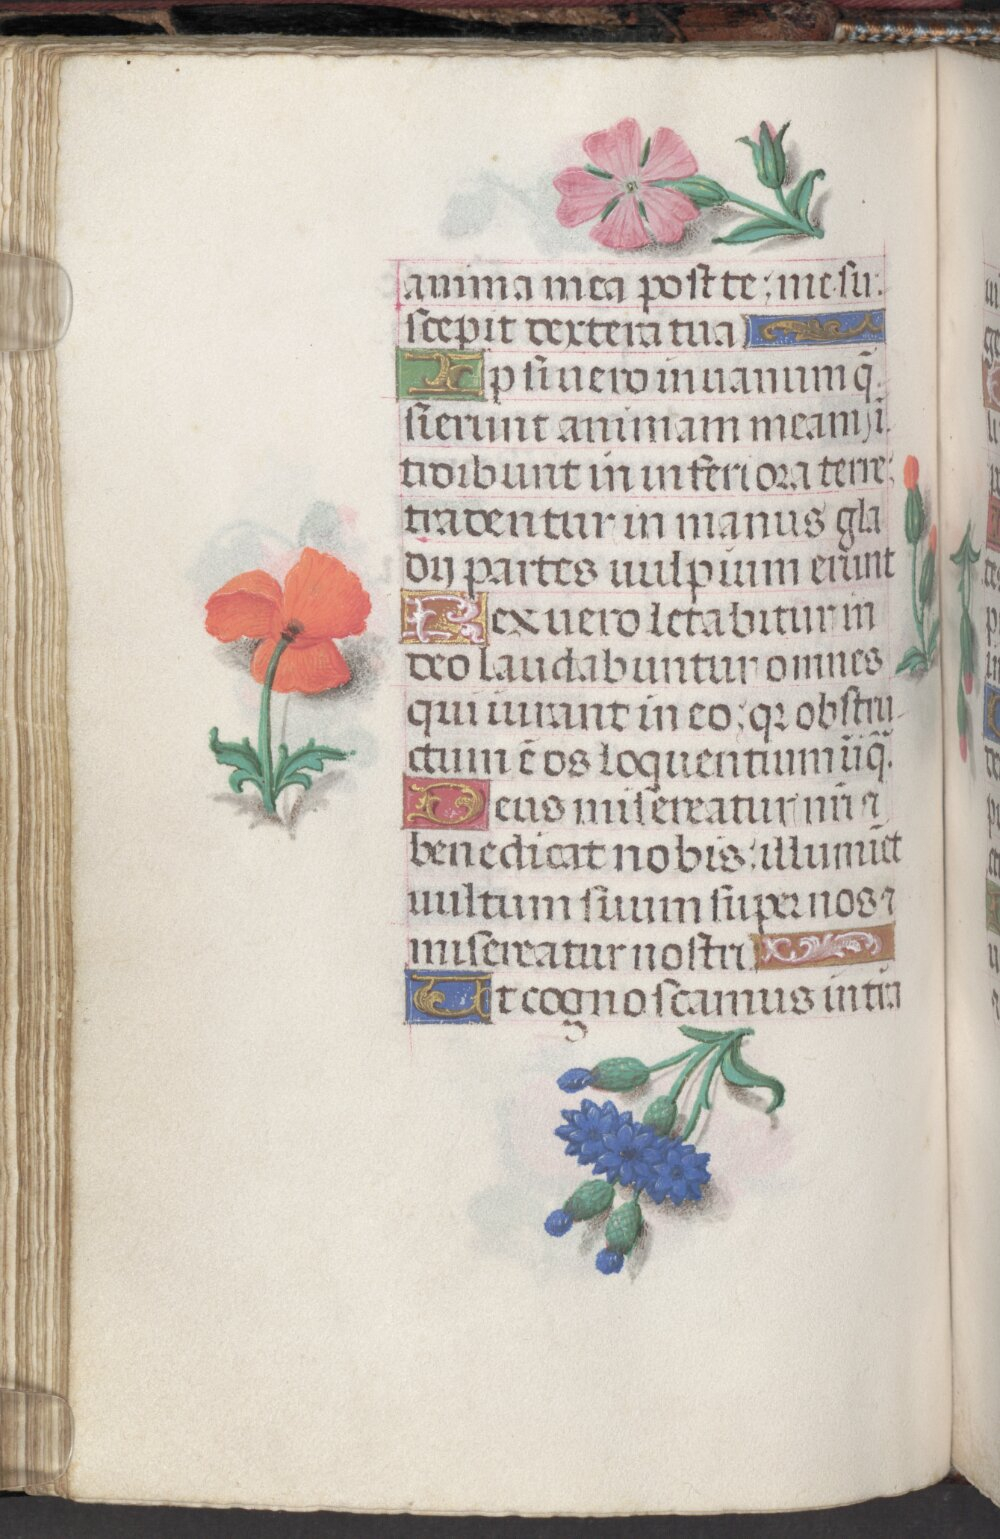 anima mea post te: me su
scepit dextera tua
Ipsi uero in uanum q̃
sierunt animam meam ĩ
troibunt in inferiora terre:
tradentur in manus gla
dij partes uulpium erunt
Rex uero letabitur in
deo laudabuntur omnes
qui iurant in eo: qꝛ obstru
ctum ẽ os loquentium iiq̃.
Deus misereatur nr̃i ⁊
benedicat nobis: illuminet
uultum suum super nos ⁊
misereatur nostri
Ut cognoscamus in tra